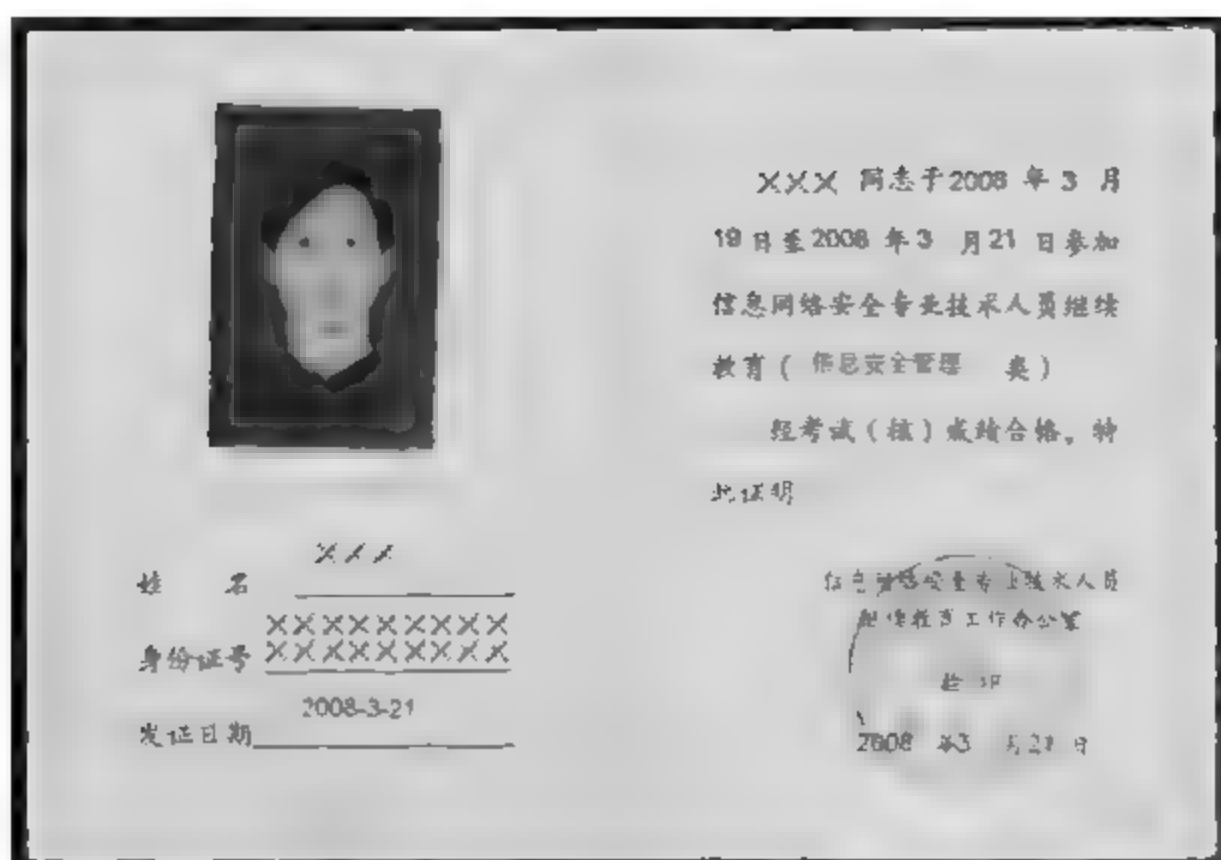 姓 名 ×××
身份证号 ×××××××××
×××××××××
发证日期 2008-3-21
××× 同志于2008 年 3 月
19 日至 2008 年 3 月 21 日参加
信息网络安全专业技术人员继续
教育( 信息安全管理 类)
经考试(核)成绩合格,特
此证明
信息网络安全专业技术人员
继续教育工作办公室
2008 年3 月21 日